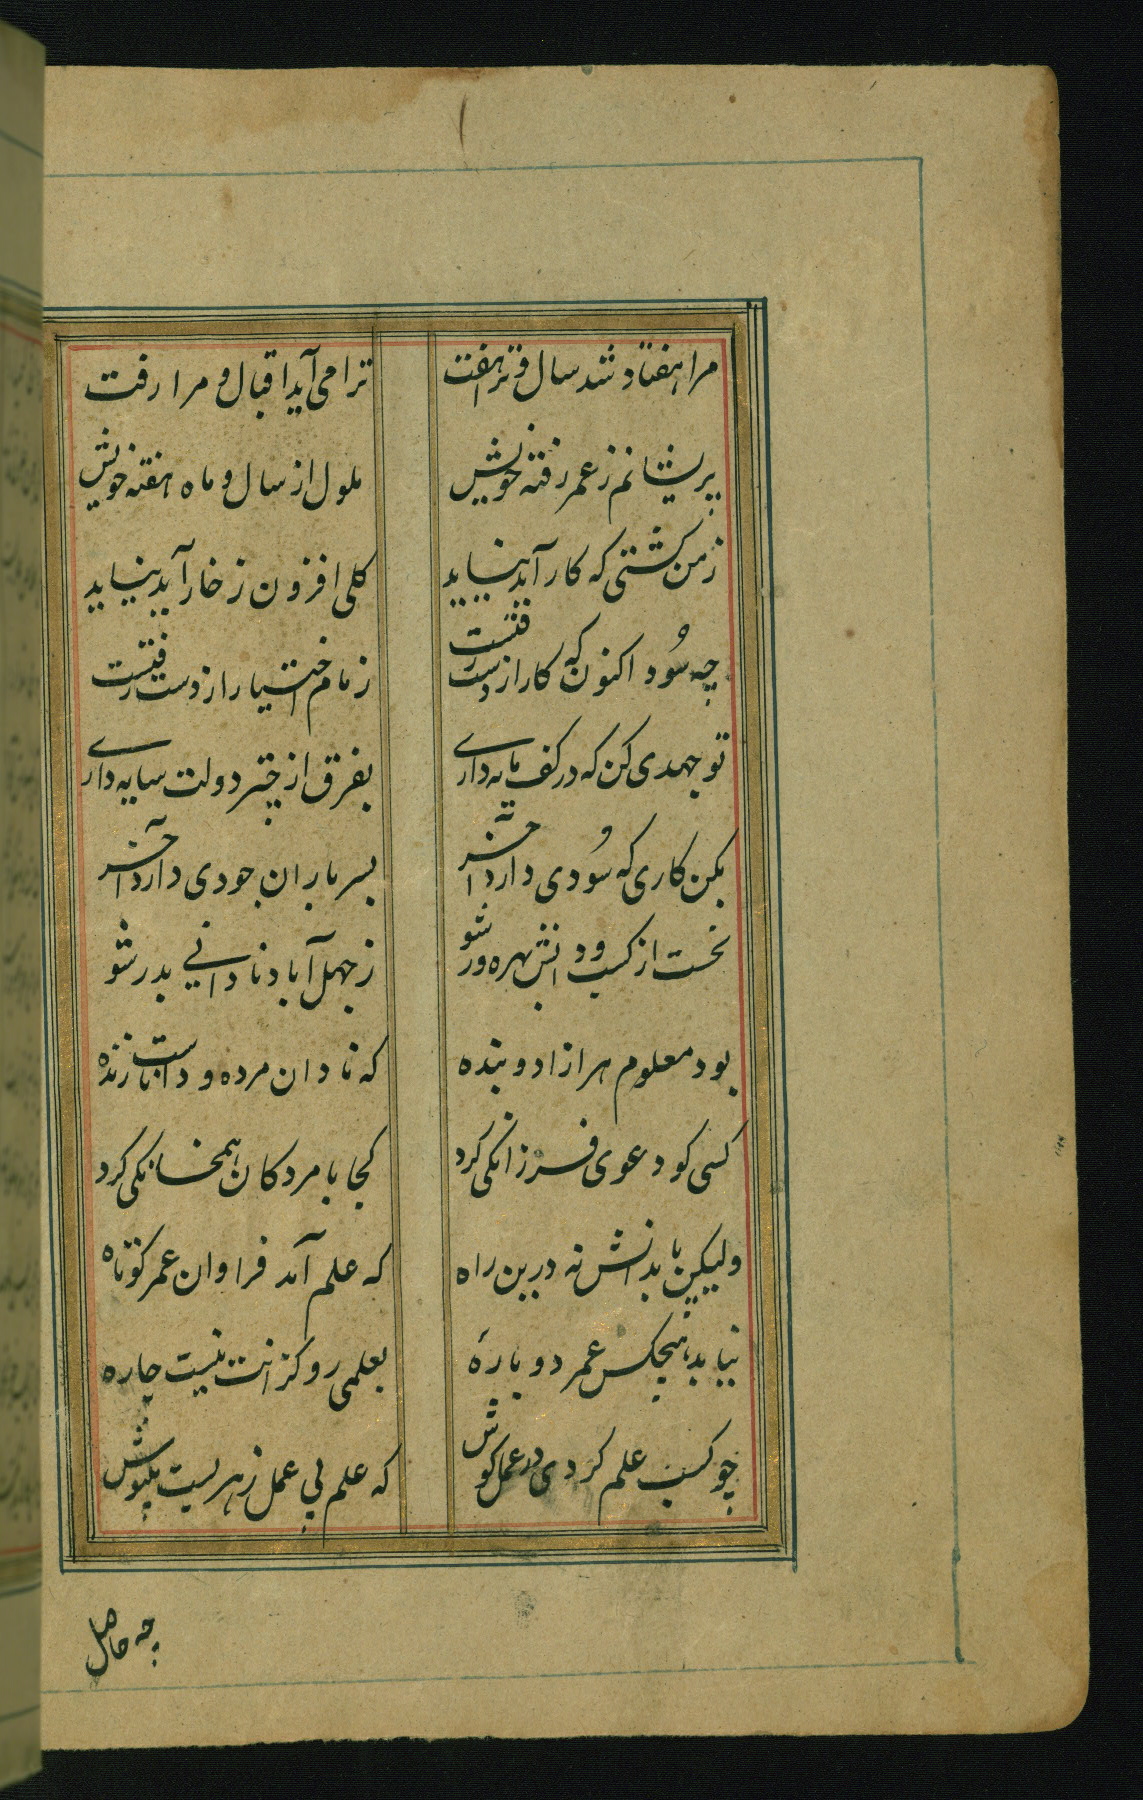 مرا هفتاد شد سال و ترا هفت ترا می آید اقبال و مرا رفت
پریشانم ز عمر رفته خویش ملول از سال و ماه هفته خویش
ز من کشتی که کار آید نیاید کلی افزون ز خار آید نیاید
چه سود اکنون که کار از دست رفتست زمام اختیار از دست رفتست
تو جهدی کن که در کف مایه داری بفرق از چتر دولت سایه داری
بکن کاری که سودی دارد آخر بسر باران جودی دارد آخر
نخست از کسب دانش بهره ور شو ز جهل آباد نادانی بدر شو
بود معلوم هر ازاد و بنده که نادان مرده و داناست زنده
کسی کو دعوی فرزانکی کرد کجا با مردکان همخانکی کرد
ولیکن پا بدانش نه درین راه که علم آمد فراوان عمر کوتاه
نیابد هیچکس عمر دوباره بعلمی رو کز انت نیست چاره
چو کسب علم کردی در عمل کوش که علم بی عمل زهریست بینوش
چه حاصل